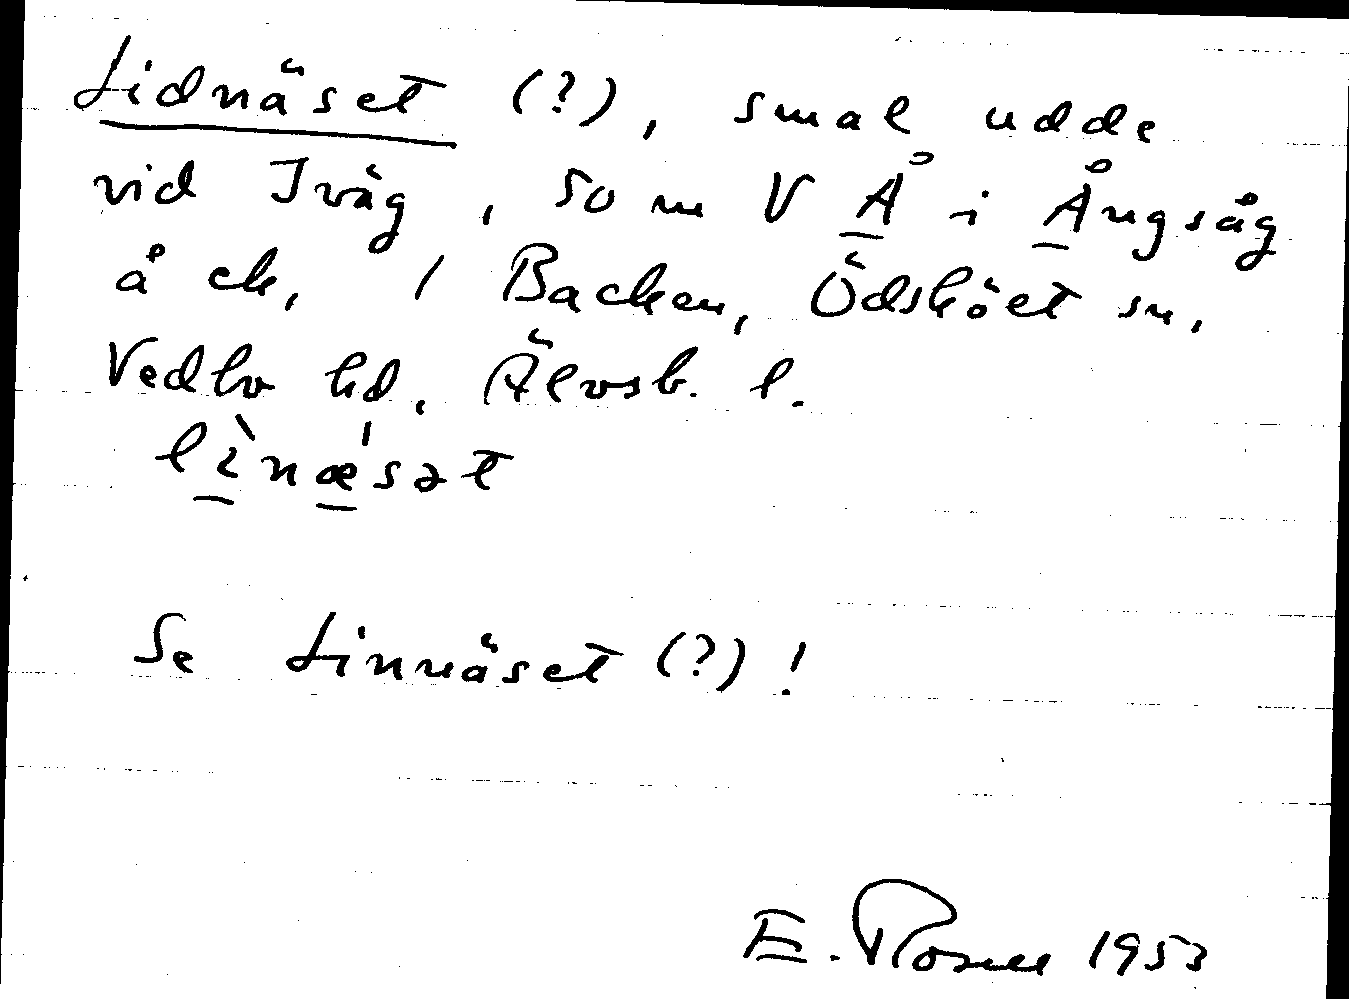 Lidnäset (?), smal udde
vid Iväg, som V Å i Ångsåg
å ek, 1 Backen, Ödsköet sn,
Vedbo hd, Älvsb. l.
lìnæ'sət
Se Linnäset (?)!
E. Rosell 1953